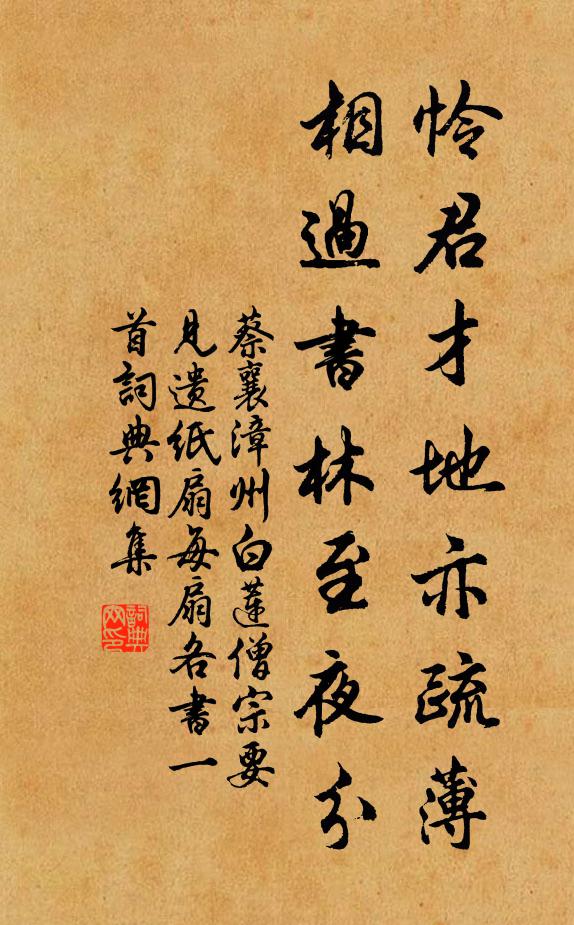 怜君才地亦疏薄
相過書林至夜分
蔡襄漳州白蓮僧宗要
見遗紙扇每扇各書一
首詞典網集
詞典网印